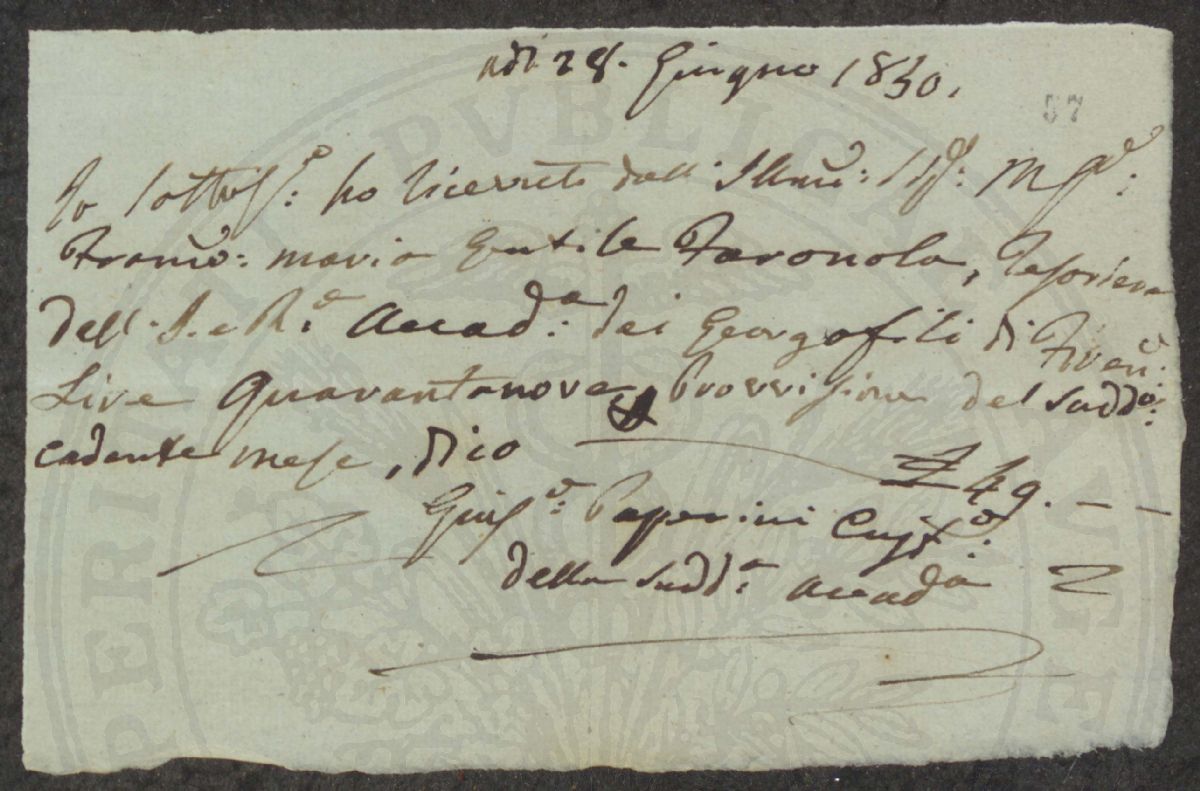 adì 28. Giugno 1830.
57
Io sottosto: ho ricevuto dall' Illmo: Sigr: M
Franco: Maria Gentile Faronola, Tesoriere
dell'I. e Re: Accada: dei Georgofili di Firene:
Lire Quarantanove, Provvisione del Suddo:
cadente mese, dico £ 49. - -
Giuse: Paperini Custo:
della Sudda: Accada
PERIVAT PVBLICAE